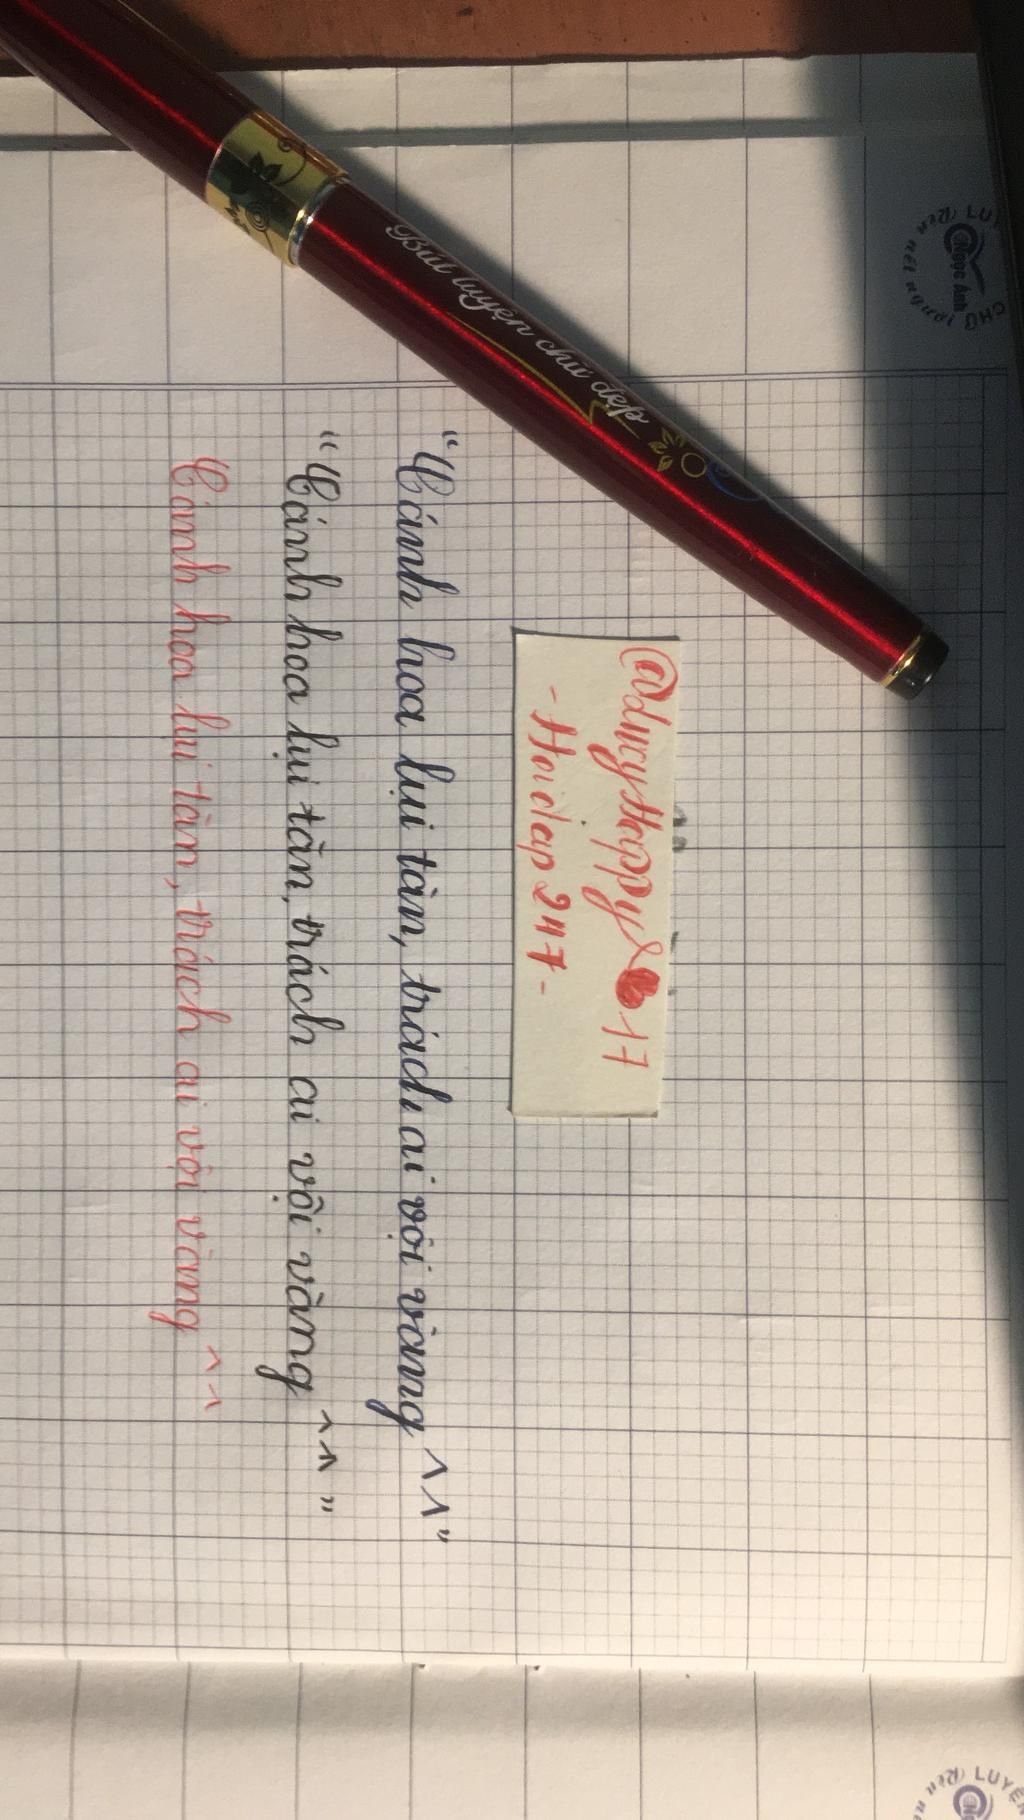 LUYỆN CHỮ
Ngọc Ánh
Rèn nết người
Bút luyện chữ đẹp
@duyHappy 17
- Hoidap247 -
"Cánh hoa lụi tàn, trách ai vội vàng ^^"
"Cánh hoa lụi tàn, trách ai vội vàng ^^"
Cánh hoa lụi tàn, trách ai vội vàng ^^
LUYỆN
Rèn